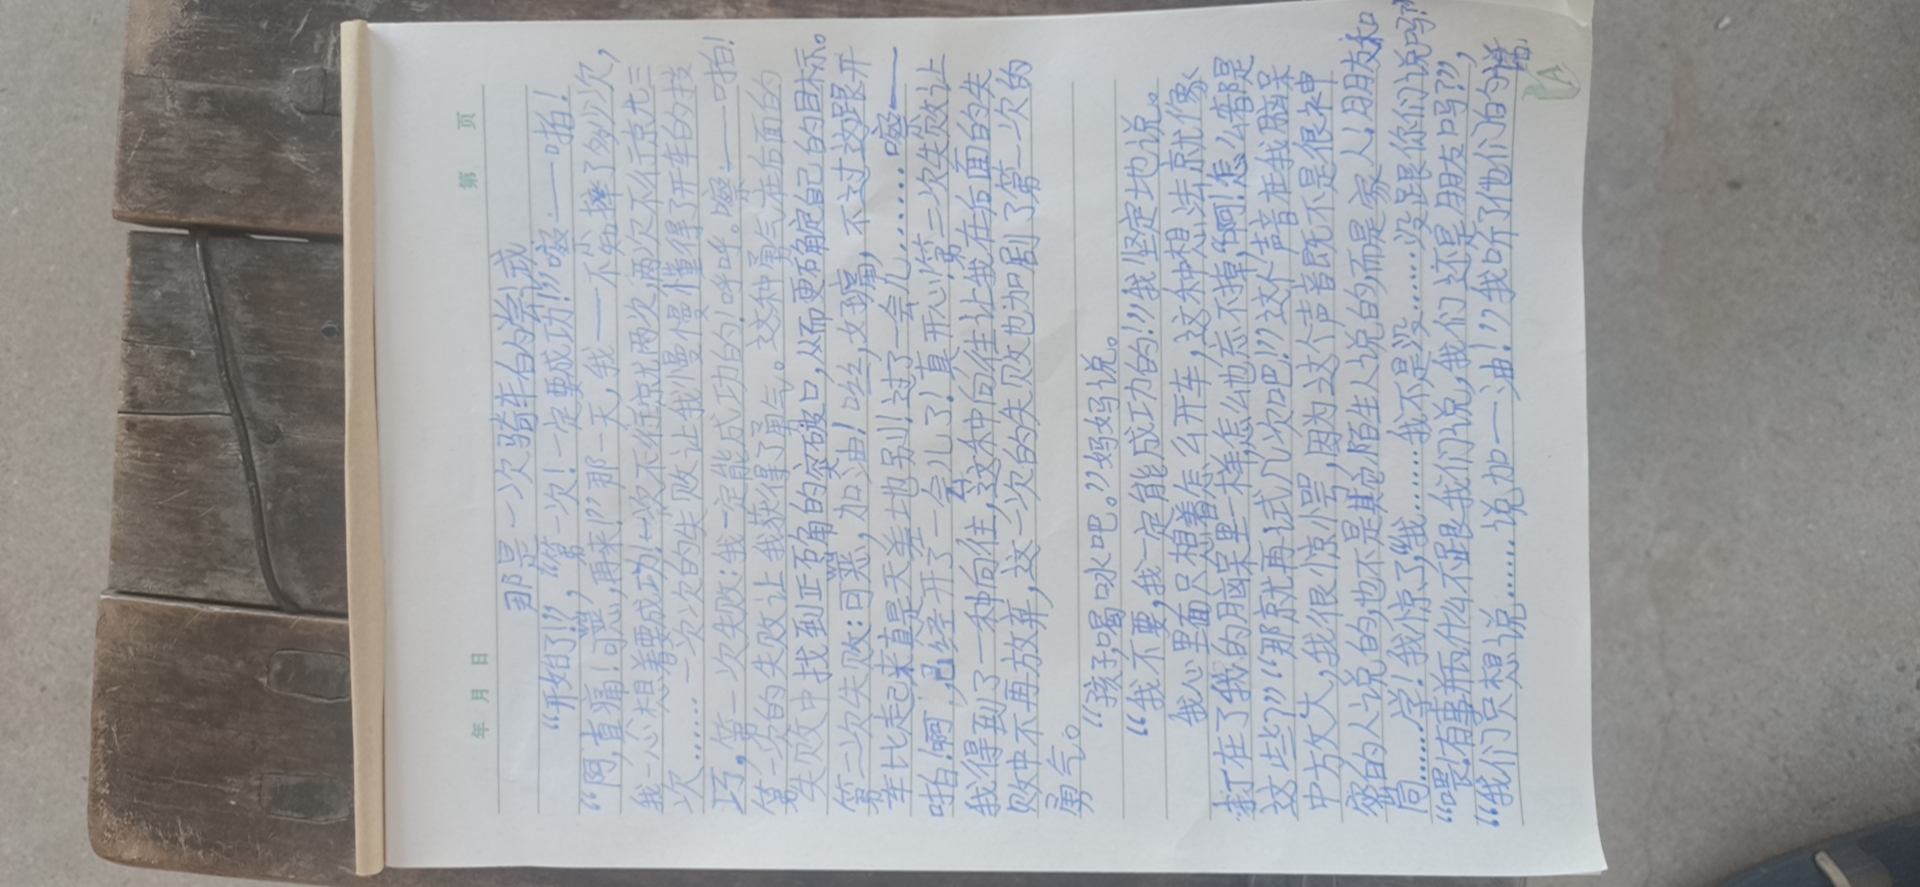 年 月 日
第 页
那是一次骑车的尝试
“开始了!”,“第一次!一定要成功!”嚓——啪!
“啊,真痛!可恶,再来!”那一天,我——不知摔了多少次,
我一心只想着要成功!一次不行就两次,两次不行就三
次……一次次的失败让我慢慢懂得了开车的技
巧。第一次失败:我一定能成功的!呼呼。嚓——啪!
第一次的失败让我获得了勇气。这种勇气在后面的
失败中找到正确的突破口,从而更确定自己的目标。
第二次失败:可恶,加油!咝,好痛,不过这跟开
车比起来真是天差地别!过了一会儿………嚓——
啪!啊,已经开了一会儿了!真开心!第二次失败让
我得到了一种向往,这种向往让我在后面的失
败中不再放弃,这一次的失败也加剧了第一次的
勇气。
“孩子,喝口水吧。”妈妈说。
“我不要,我一定能成功的!”我坚定地说。
我心里面只想着怎么开车,这种想法就像
打在了我的脑呆里一样,怎么也忘不掉,“啊!怎么都是
这些?”“那就再试几次吧!”这个声音在我脑呆
中放大,我很惊讶,因为这个声音既不是很神
密的人说的,也不是其他陌生人说的,而是家人,朋友和
同……学!我惊了,“我……我不是没……没跟你们说吗?”
“喂,有事为什么不跟我们说,我们还是朋友吗?”,
“我们只想说……说加一油!”我听了他们的话
A